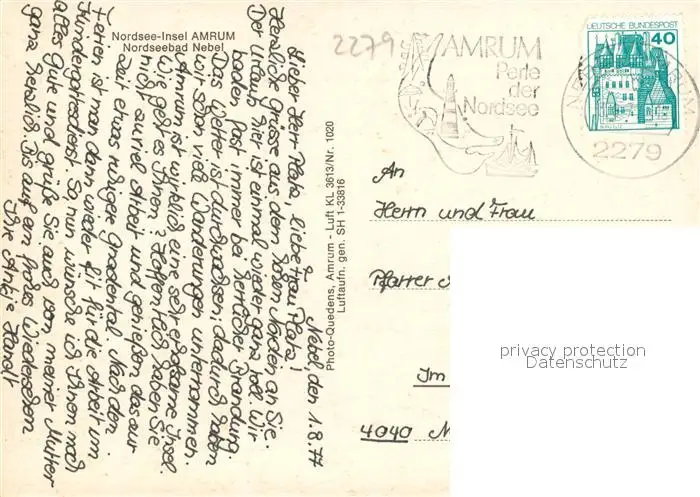 Nordsee-Insel AMRUM
Nordseebad Nebel
Nebel, den 1.8.77
Lieber Herr Plata, liebe Frau Plata!
Herzliche Grüsse aus dem hohen Norden an Sie.
Der Urlaub hier ist einmal wieder ganz toll. Wir
baden fast immer bei herrlicher Brandung.
Das Wetter ist durchwachsen, dadurch haben
wir schon viel Wanderungen unternommen.
Amrum ist wirklich eine sehr erholsame Insel.
Wie geht es Ihnen? Hoffentlich haben Sie
nicht zuviel Arbeit und genießen das zur
Zeit etwas ruhiger. Nach den
Ferien ist man dann wieder fit für die Arbeit im
Kindergottesdienst. So, nun wünsche ich Ihnen noch
alles Gute und grüße Sie auch von meiner Mutter
ganz herzlich. Bis auf ein frohes Wiedersehen
Ihre Antje
Photo-Quedens, Amrum - Luft KL 3613/Nr. 1020
Luftaufn. gen. SH 1-33816
2279
AMRUM
Perle
der
Nordsee
DEUTSCHE BUNDESPOST
40
2279
An
Herrn und Frau
Pfarrer
Im
4040
privacy protection
Datenschutz